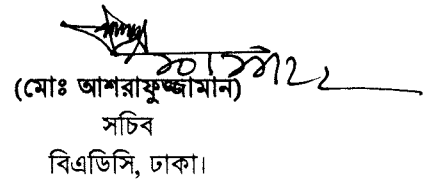 (মোঃ আশরাফুজ্জামান)
সচিব
বিএডিসি, ঢাকা।